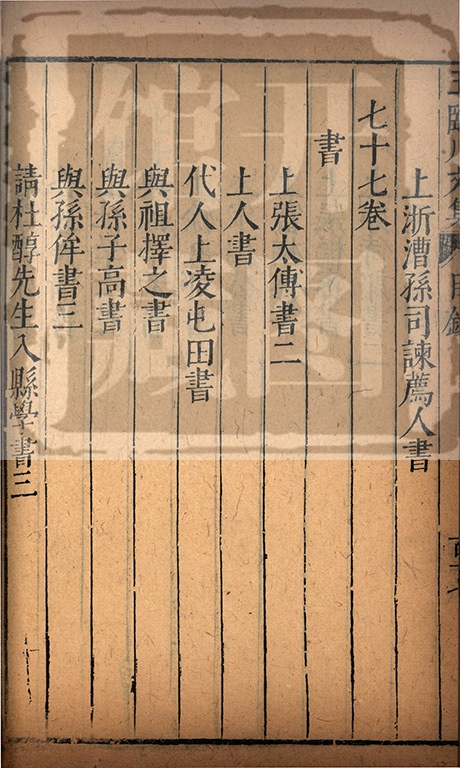 上浙漕孫司諫薦人書
七十七卷
書
上張太傅書二
上人書
代人上凌屯田書
與祖擇之書
與孫子高書
與孫侔書三
請杜醇先生入縣學書二